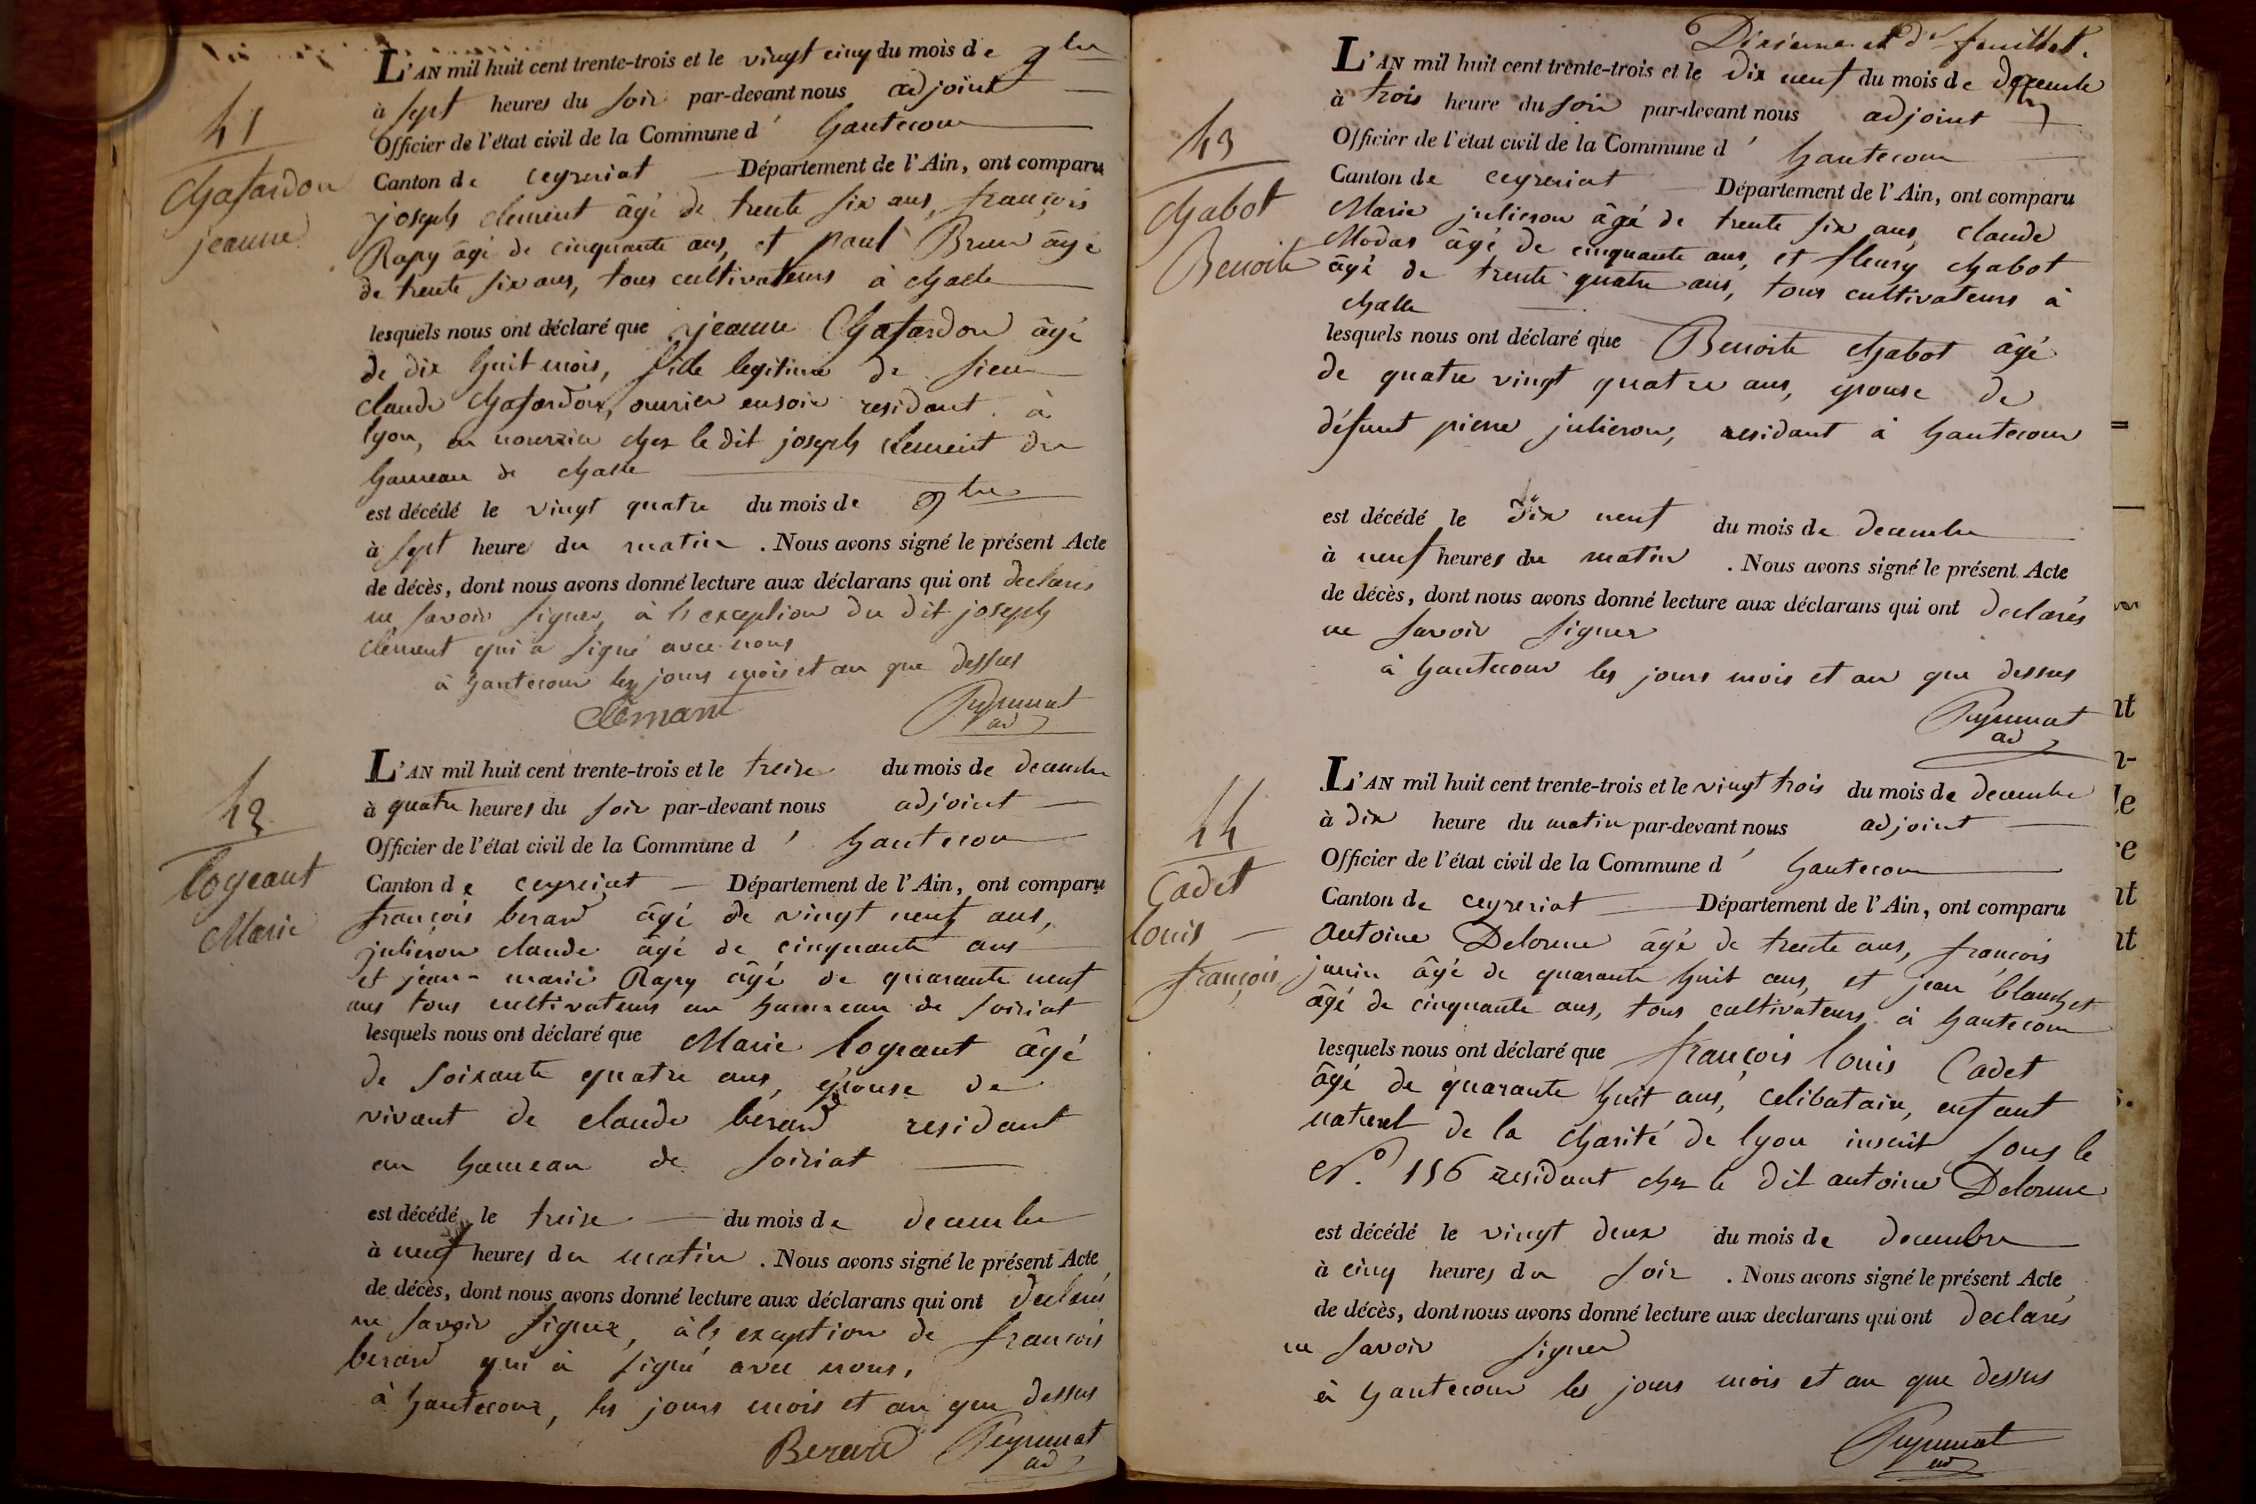 41
Chafardon
jeanne
L'AN mil huit cent trente-trois et le vingt cinq du mois de 9bre
à sept heures du soir par-devant nous adjoint
Officier de l'état civil de la Commune d' hautecour
Canton de ceyzeriat Département de l'Ain, ont comparu
joseph clement âgé de trente six ans, françois
Rapy âgé de cinquante ans, et paul Brun âgé
de trente six ans, tous cultivateurs à challe
lesquels nous ont déclaré que jeanne Chafardon âgé
de dix huit mois, fille legitime de sieur
claude Chafardon, ouvrier ensoie residant à
lyon, en nourrice chez le dit joseph clement du
hameau de challe
est décédé le vingt quatre du mois de 9bre
à sept heure du matin . Nous avons signé le présent Acte
de décès, dont nous avons donné lecture aux déclarans qui ont declarés
ne savoir signer, à l'exception du dit joseph
clement qui a signé avec nous
à hautecour les jours mois et an que dessus
Clémant
ad
42
logeant
Marie
L'AN mil huit cent trente-trois et le treize du mois de decembre
à quatre heures du soir par-devant nous adjoint
Officier de l'état civil de la Commune d' hautecour
Canton de ceyzeriat Département de l'Ain, ont comparu
françois berard âgé de vingt neuf ans,
julieron claude âgé de cinquante ans
et jean-marie Rapy âgé de quarante neuf
ans tous cultivateurs au hameau de soiriat
lesquels nous ont déclaré que Marie logeant âgé
de soixante quatre ans, épouse de
vivant de claude bérard residant
au hameau de soiriat
est décédé le treize du mois de decembre
à neuf heures du matin . Nous avons signé le présent Acte
de décès, dont nous avons donné lecture aux déclarans qui ont declarés
ne savoir signer, à l'exception de françois
berard qui à signé avec nous,
à hautecour, les jours mois et an que dessus
Berard
ad
Dixieme et der feuillet.
43
Chabot
Benoite
L'AN mil huit cent trente-trois et le dix neuf du mois de decembre
à trois heure du soir par-devant nous adjoint
Officier de l'état civil de la Commune d' hautecour
Canton de ceyzeriat Département de l'Ain, ont comparu
Marie julieron âgé de trente six ans, claude
Modas âgé de cinquante ans, et fleury chabot
âgé de trente quatre ans, tous cultivateurs à
challe
lesquels nous ont déclaré que Benoite chabot âgé
de quatre vingt quatre ans, épouse de
défunt pierre julieron, residant à hautecour
est décédé le dix neuf du mois de decembre
à neuf heures du matin . Nous avons signé le présent Acte
de décès, dont nous avons donné lecture aux déclarans qui ont declarés
ne savoir signer
à hautecour les jours mois et an que dessus
ad
44
Cadet
louis
françois
L'AN mil huit cent trente-trois et le vingt trois du mois de decembre
à dix heure du matin par-devant nous adjoint
Officier de l'état civil de la Commune d' hautecour
Canton de ceyzeriat Département de l'Ain, ont comparu
Antoine Delorme âgé de trente ans, françois
janin âgé de quarante huit ans, et jean blanchet
âgé de cinquante ans, tous cultivateurs à hautecour
lesquels nous ont déclaré que françois louis Cadet
âgé de quarante huit ans, celibataire, enfant
naturel de la charité de lyon inscrit sous le
N.o 156 residant chez le dit antoine Delorme
est décédé le vingt deux du mois de decembre
à cinq heures du soir . Nous avons signé le présent Acte
de décès, dont nous avons donné lecture aux declarans qui ont declarés
ne savoir signer
à hautecour les jours mois et an que dessus